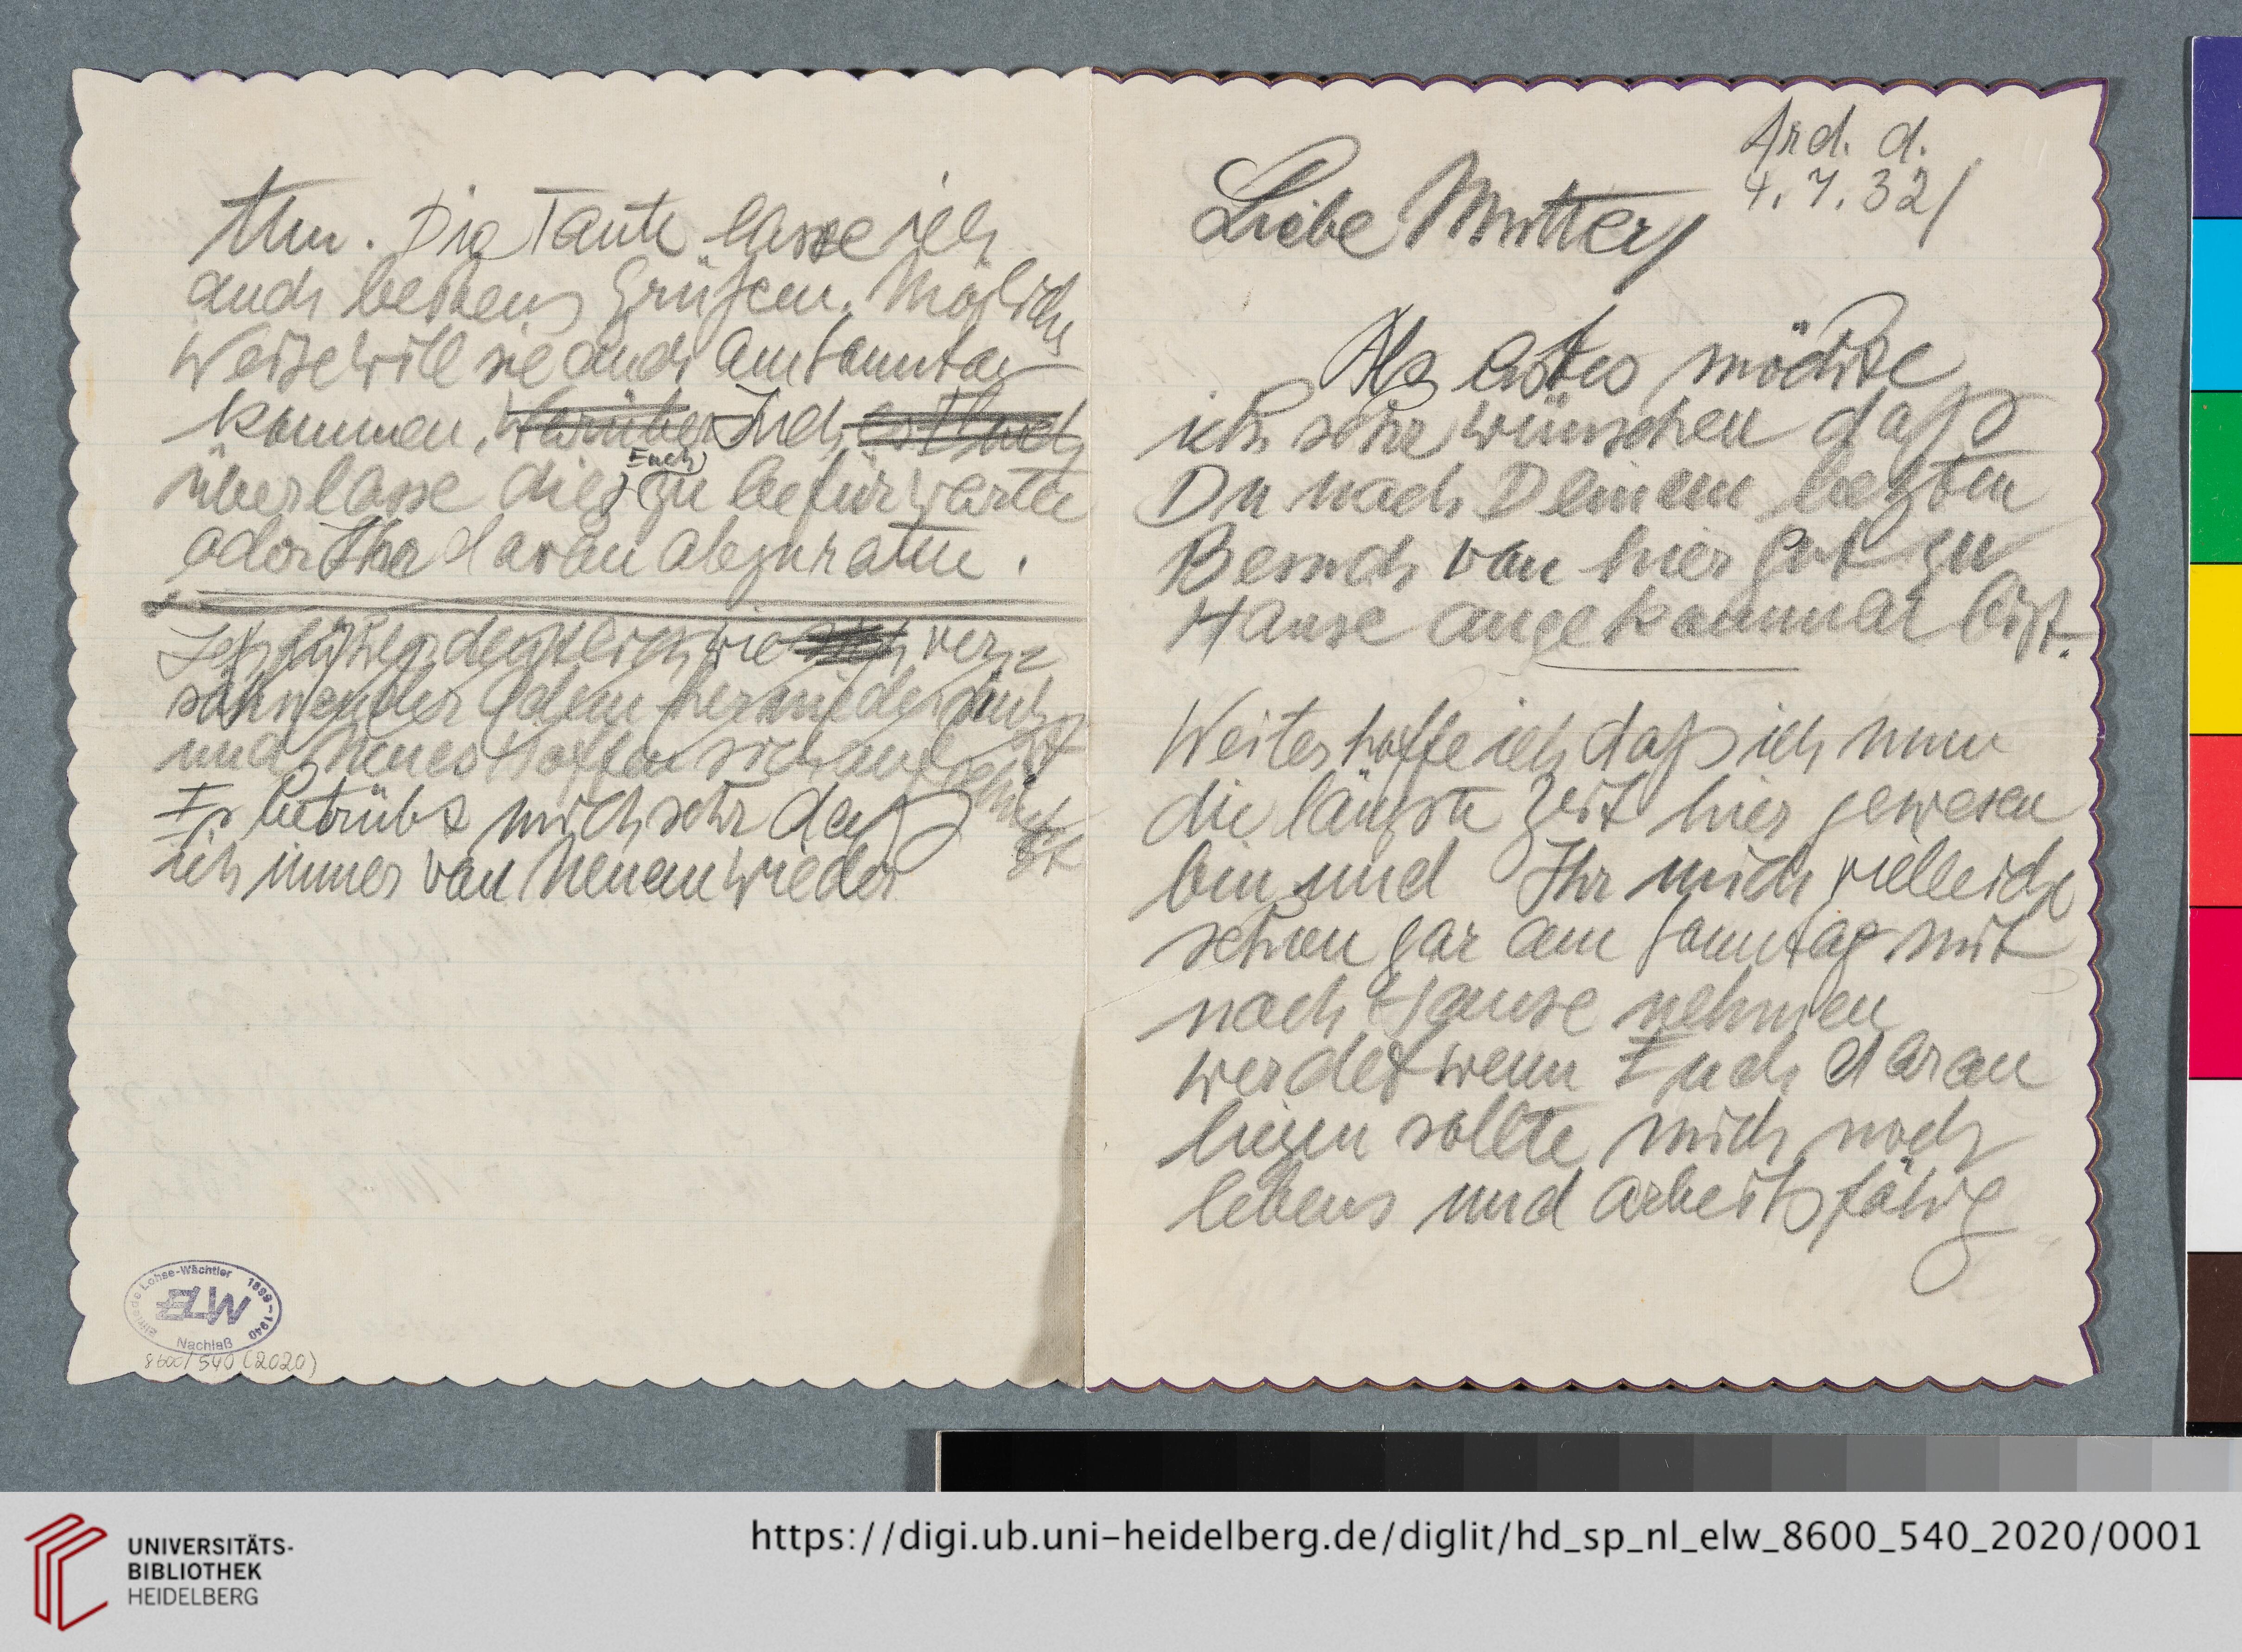 Ard. d.
4. 7. 32/
Liebe Mutter/
Als erstes möchte
ich sehr wünschen daß
Du nach Deinem letzten
Besuch von hier gut zu
Hause angekommen bist.
Weiter hoffe ich daß ich nun
die längste Zeit hier gewesen
bin und Ihr mich vielleicht
schon gar am Sonntag mit
nach Hause nehmen
werdet wenn Euch daran
liegen sollte mich noch
lebens und arbeitsfähig
Die Tante lasse ich
auch bestens Grüßen. Möglicher
Weise will sie auch am Sonntag
kommen. Ich
Euch
überlasse dies zu befürworten
oder Ihr davon abzuraten.
wie ver-
und neues Hoffen sich
Es betrübt mich sehr daß
ich immer von Neuem wieder
Elfriede Lohse-Wächtler 1899-1940
ELW
Nachlaß
8600/540 (2020)
UNIVERSITÄTS-
BIBLIOTHEK
HEIDELBERG
https://digi.ub.uni-heidelberg.de/diglit/hd_sp_nl_elw_8600_540_2020/0001